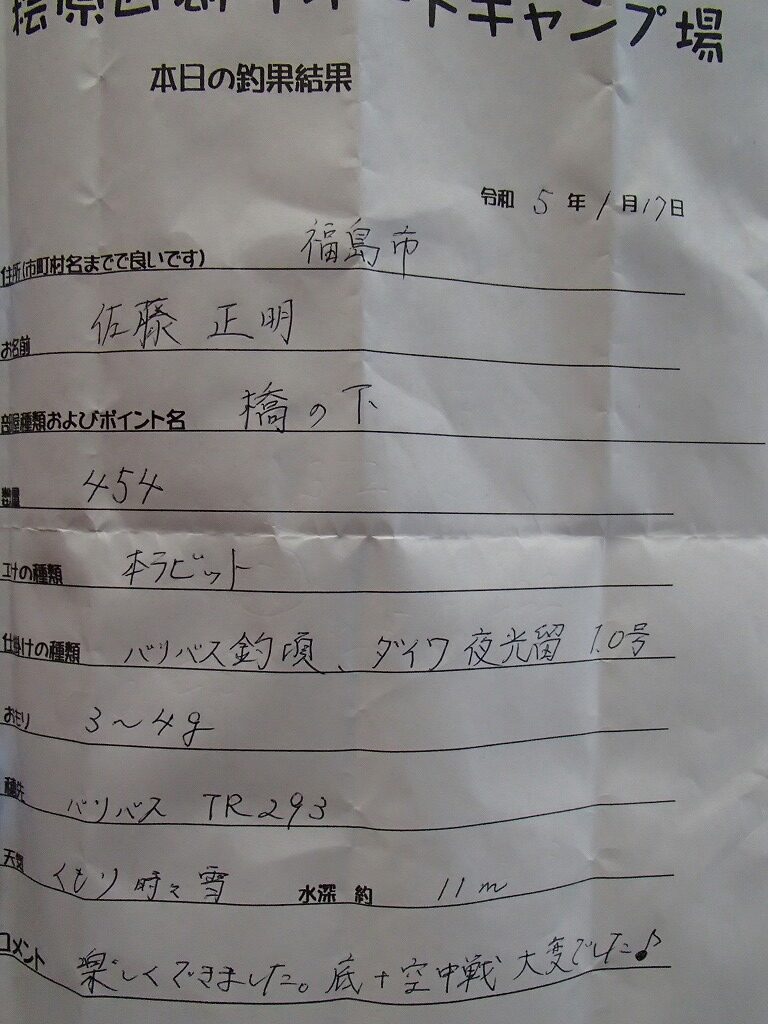 キャンプ場
本日の釣果結果
令和 5 年 1 月 17 日
住所(市町村名まで良いです) 福島市
お名前 佐藤 正明
部屋種類およびポイント名 橋の下
数量 454
エサの種類 本ラビット
仕掛けの種類 バリバス釣頃、ダイワ夜光留 1.0号
おもり 3〜4g
穂先 バリバス TR293
天気 くもり時々雪 水深 約 11m
コメント 楽しくできました。底+空中戦 大変でした♪